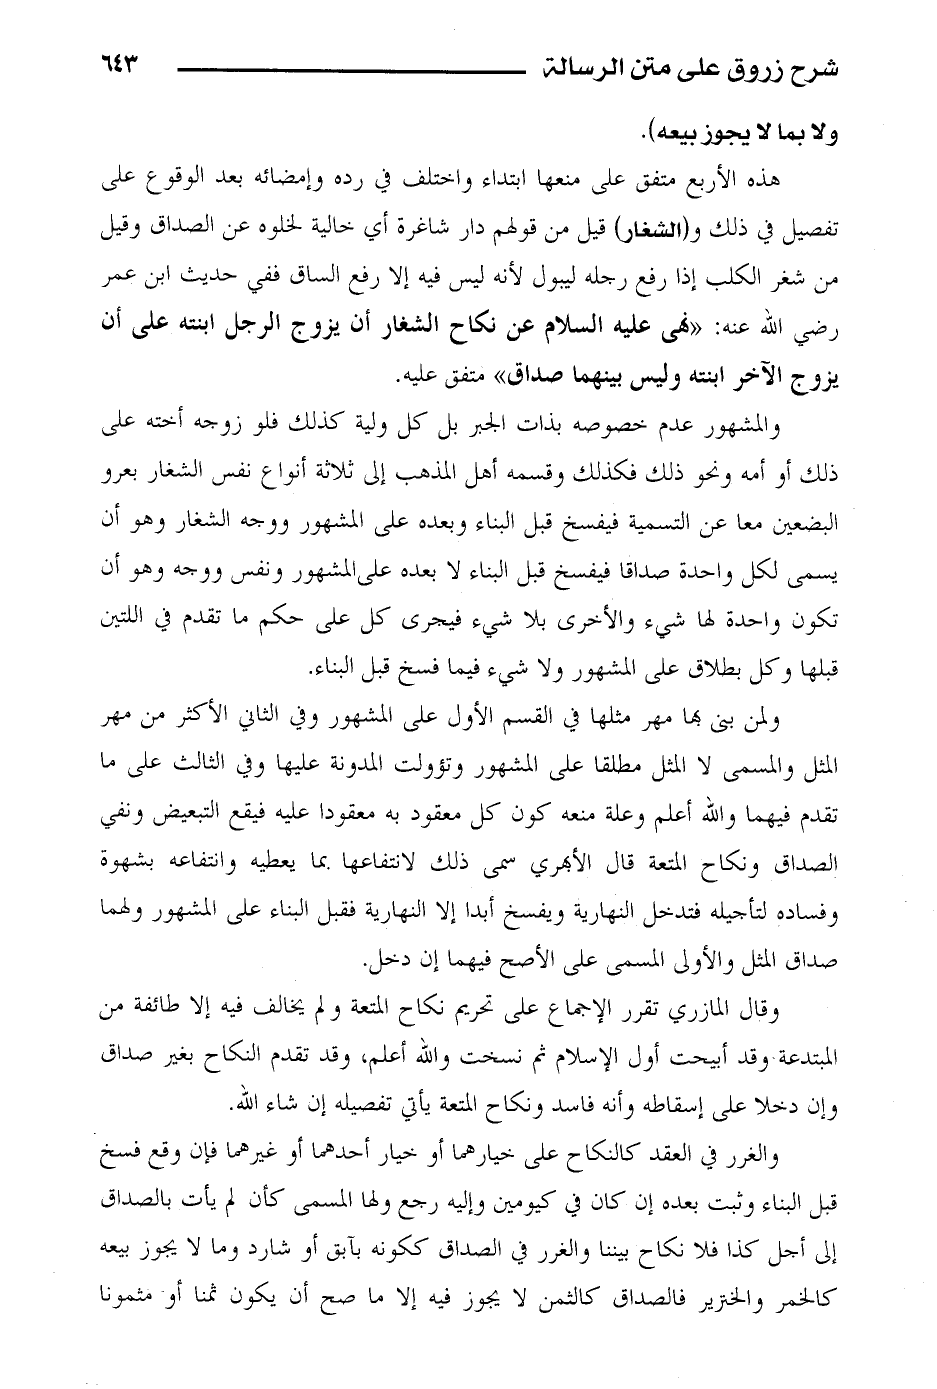 شرح زروق على متن الرسالة ٦٤٣
ولا بما لا يجوز بيعه).
هذه الأربع متفق على منعها ابتداء واختلف في رده وإمضائه بعد الوقوع على
تفصيل في ذلك و(الشغار) قيل من قولهم دار شاغرة أي خالية لخلوه عن الصداق وقيل
من شغر الكلب إذا رفع رجله ليبول لأنه ليس فيه إلا رفع الساق ففي حديث ابن عمر
رضي الله عنه: «نهى عليه السلام عن نكاح الشغار أن يزوج الرجل ابنته على أن
يزوج الآخر ابنته وليس بينهما صداق» متفق عليه.
والمشهور عدم خصوصه بذات الجبر بل كل ولية كذلك فلو زوجه أخته على
ذلك أو أمه ونحو ذلك فكذلك وقسمه أهل المذهب إلى ثلاثة أنواع نفس الشغار بعرو
البضعين معا عن التسمية فيفسخ قبل البناء وبعده على المشهور ووجه الشغار وهو أن
يسمى لكل واحدة صداقا فيفسخ قبل البناء لا بعده على المشهور ونفس ووجه وهو أن
تكون واحدة لها شيء والأخرى بلا شيء فيجرى كل على حكم ما تقدم في اللتين
قبلها وكل بطلاق على المشهور ولا شيء فيما فسخ قبل البناء.
ولمن بنى بها مهر مثلها في القسم الأول على المشهور وفي الثاني الأكثر من مهر
المثل والمسمى لا المثل مطلقا على المشهور وتؤولت المدونة عليها وفي الثالث على ما
تقدم فيهما والله أعلم وعلة منعه كون كل معقود به معقودا عليه فيقع التبعيض ونفي
الصداق ونكاح المتعة قال الأبهري سمى ذلك لانتفاعها بما يعطيه وانتفاعه بشهوة
وفساده لتأجيله فتدخل النهارية ويفسخ أبدا إلا النهارية فقبل البناء على المشهور ولهما
صداق المثل والأولى المسمى على الأصح فيهما إن دخل.
وقال المازري تقرر الإجماع على تحريم نكاح المتعة ولم يخالف فيه إلا طائفة من
المبتدعة وقد أبيحت أول الإسلام ثم نسخت والله أعلم، وقد تقدم النكاح بغير صداق
وإن دخلا على إسقاطه وأنه فاسد ونكاح المتعة يأتي تفصيله إن شاء الله.
والغرر في العقد كالنكاح على خيارهما أو خيار أحدهما أو غيرهما فإن وقع فسخ
قبل البناء وثبت بعده إن كان في كيومين وإليه رجع ولها المسمى كأن لم يأت بالصداق
إلى أجل كذا فلا نكاح بيننا والغرر في الصداق ككونه بآبق أو شارد وما لا يجوز بيعه
كالخمر والخنزير فالصداق كالثمن لا يجوز فيه إلا ما صح أن يكون ثمنا أو مثمونا